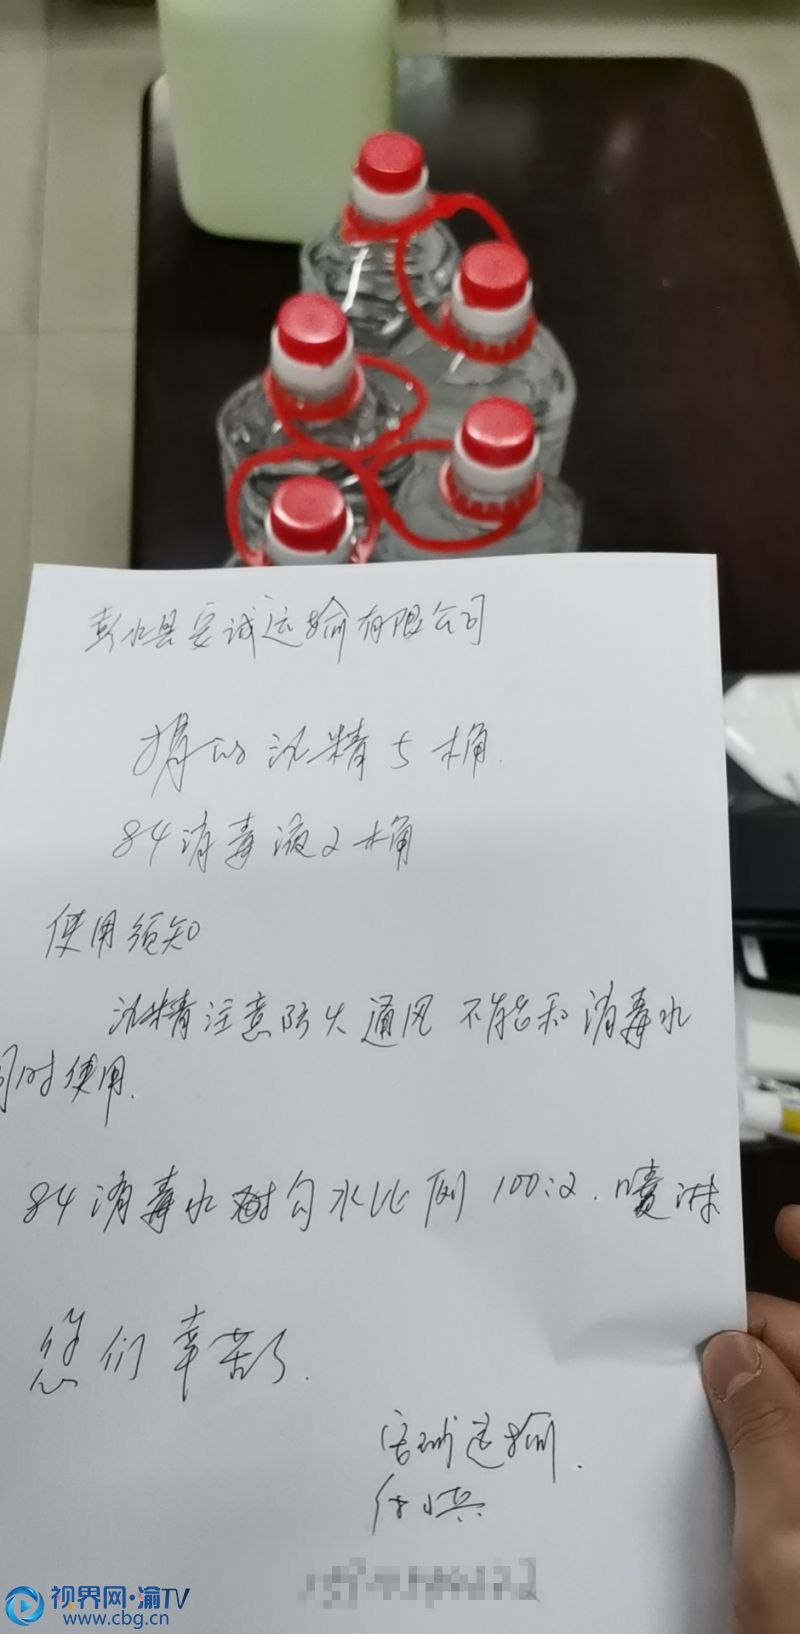 彭水县安诚运输有限公司
捐的 酒精5桶.
84消毒液2桶
使用须知
酒精注意防火通风 不能和消毒水
同时使用.
84消毒水 勾水比例 100:2. 喷淋
您们辛苦了.
安诚运输.
视界网·渝TV
www.cbg.cn